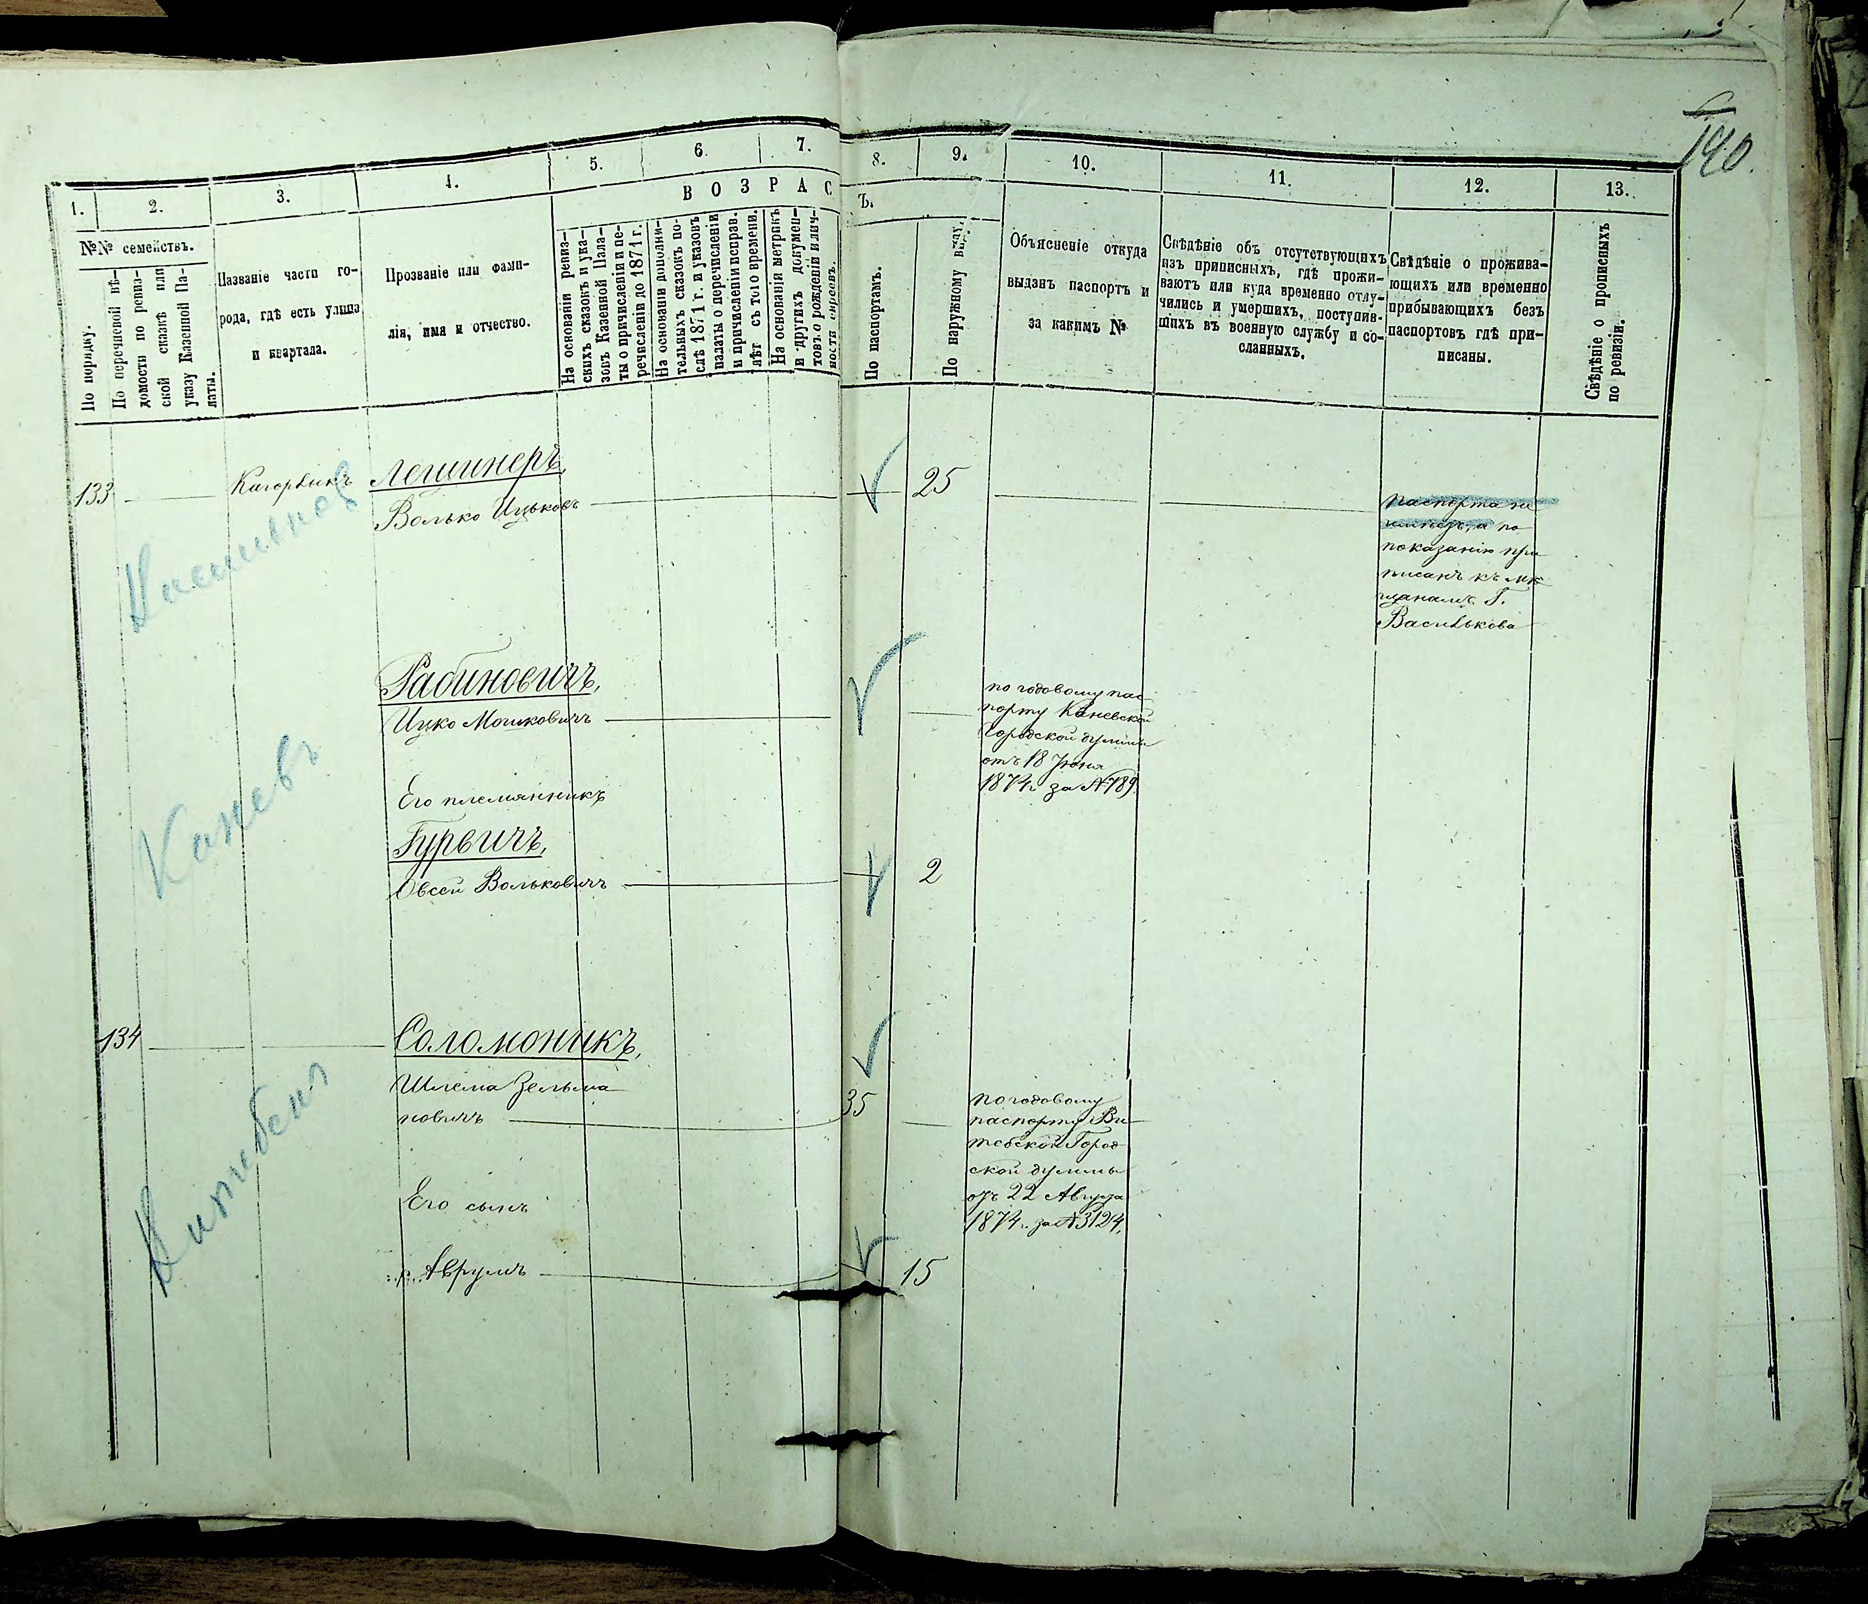 190.
1.
2.
3.
4.
5.
6.
7.
8.
9.
10.
11.
12.
13.
№№ семействъ.
По порядку.
По перечневой вѣ-
домости по ревиз-
ской сказкѣ или
указу Казенной Па-
латы.
Названіе части го-
рода, гдѣ есть улица
и квартала.
Прозваніе или фами-
лія, имя и отчество.
ВОЗРАС
Ъ.
На основаніи ревиз-
скихъ сказокъ и ука-
зовъ Казенной Пала-
ты о причисленіи и пе-
речисленіи до 1871 г.
На основаніи дополни-
тельныхъ сказокъ по-
слѣ 1871 г. и указовъ
палаты о перечисленіи
и причисленіи исправ.
лѣт съ того времени.
На основаніи метрикъ
и другихъ докумен-
товъ о рожденіи и лич-
ности евреевъ.
По паспортамъ.
По наружному виду.
Объясненіе откуда
выданъ паспортъ и
за какимъ №
Свѣдѣніе объ отсутствующихъ
изъ приписныхъ, гдѣ прожи-
ваютъ или куда временно отлу-
чились и умершихъ, поступив-
шихъ въ военную службу и со-
сланныхъ.
Свѣдѣніе о прожива-
ющихъ или временно
прибывающихъ безъ
паспортовъ гдѣ при-
писаны.
Свѣдѣніе о прописныхъ
по ревизіи.
133
Кагорлыкъ
Лешинеръ,
Волько Ицьковъ
25
Паспорта не
имѣетъ, а по
показанію при
писанъ къ мѣ
щанамъ Г.
Василькова
Васильков
Рабиновичъ,
Ицко Мошковичъ
по годовому пас
порту Каневской
Городской думы
отъ 18 Іюня
1874 г. за №789.
Каневъ
Его племянникъ
Гурвичъ,
Овсей Вольковичъ
2
134
Соломоникъ,
Шлема Зельма
новичъ
35
По годовому
паспорту Ви
тебской Город
ской думы
отъ 22 Августа
1874 г. за №3124.
Витебскъ
Его сынъ
Аврумъ
15